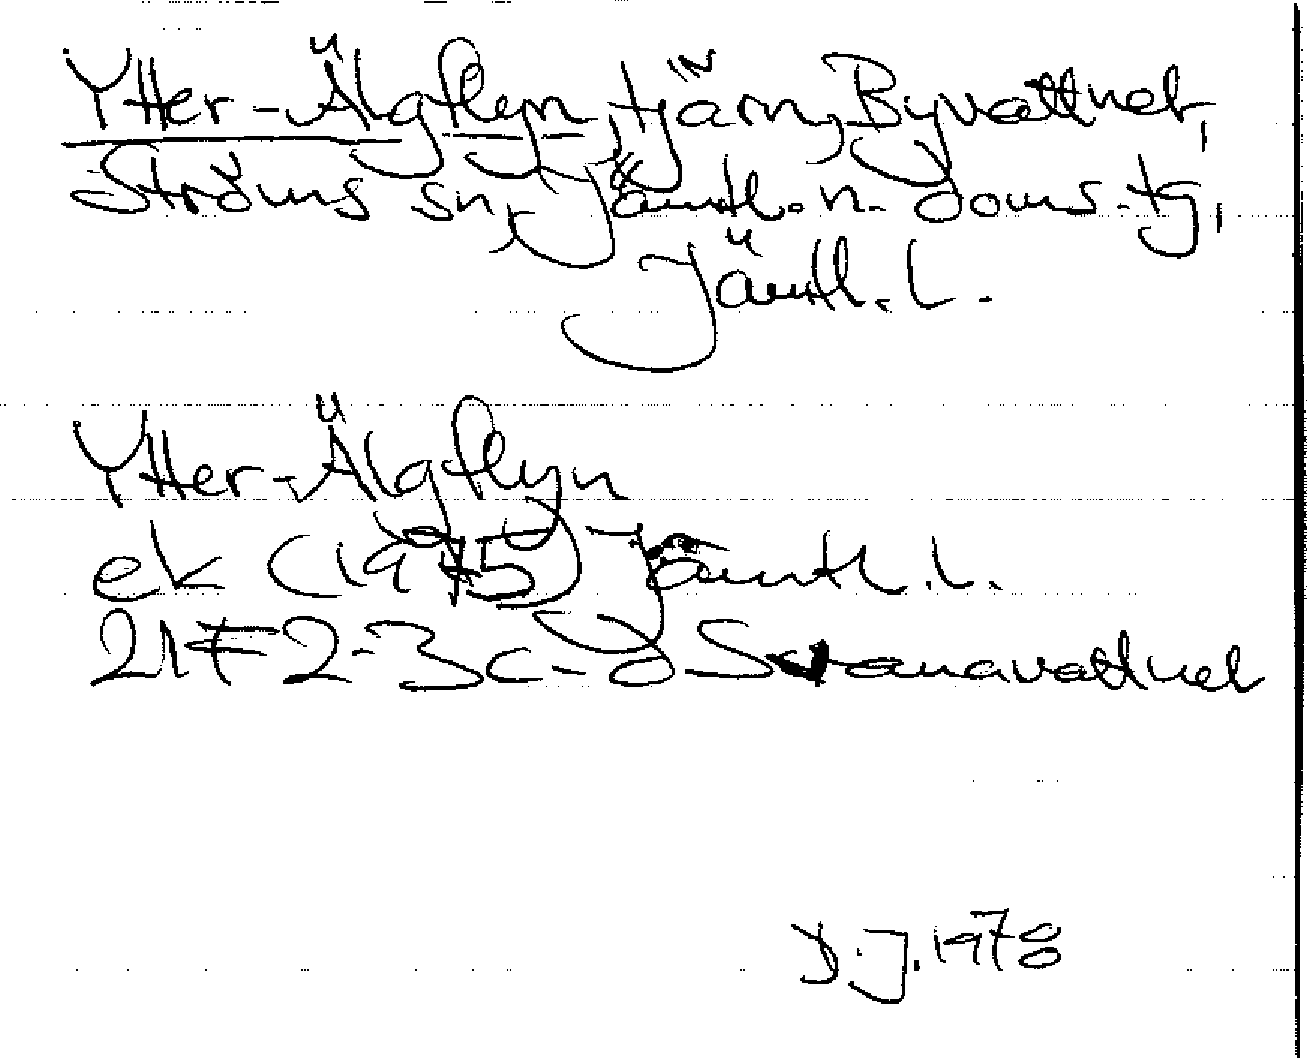 Ytter-Älgflyn, tjärn, Byvattnet,
Ströms sn, Jämtl. n. doms.-tg,
Jämtl. L.
Ytter-Älgflyn
ek (1975) Jämtl. L.
21F 2-3c-d Svanavattnet
D.J. 1978